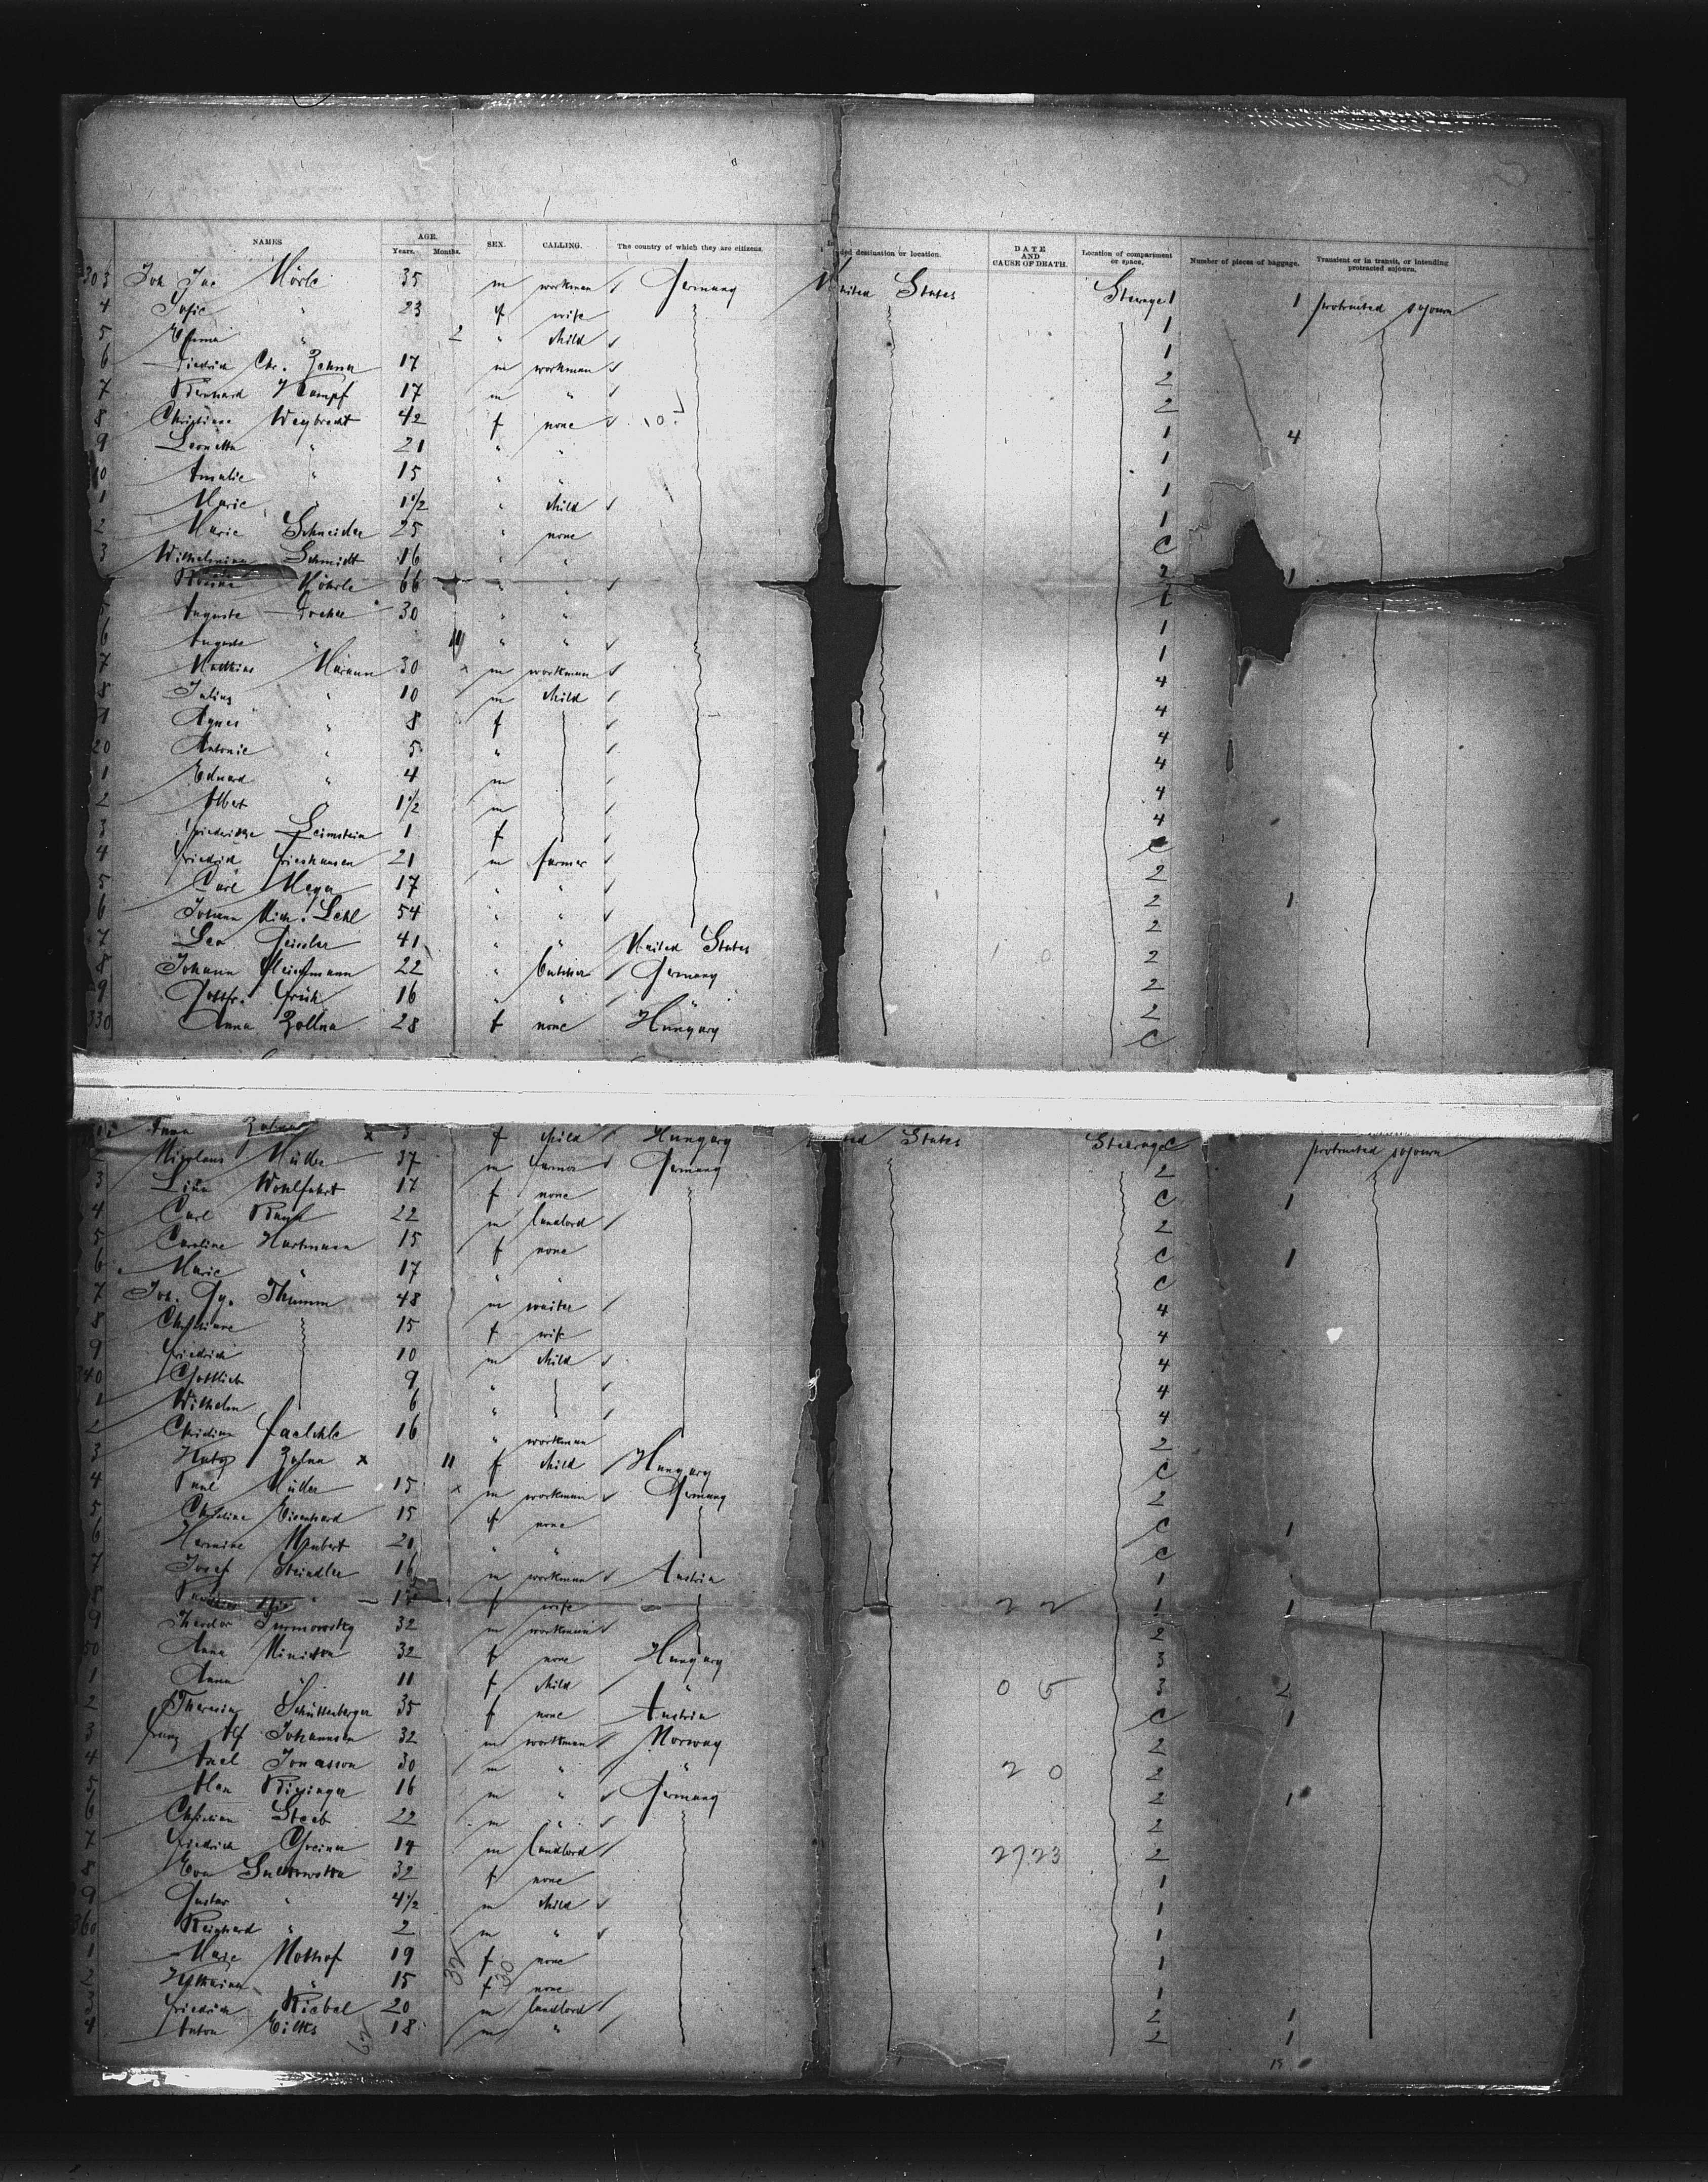 NAMES AGE. Years. Months. SEX. CALLING. The country of which they are citizens. ded destination or location. DATE AND CAUSE OF DEATH. Location of compartment or space. Number of pieces of baggage. Transient or in transit, or intending protracted sojourn.
303 Joh Jac Mörle 35 m workman Germany United States Steerage 1 1 protracted sojourn
4 Sofie " 23 f wife 1
5 " 2 " child 1
6 Friedrich Chr. Zehner 17 m workman 2
7 Bernhard Kampf 17 m " 2
8 Christiane Weybrecht 42 f none 1 4
9 " 21 " " 1
10 Amalie " 15 " " 1
1 Marie " 1 1/2 " child 1
2 Marie Schneider 25 " none C
3 Wilhelmine Schmidt 16 " " 1
Möhrle 66 " "
Auguste 30 " " 1
6 Auguste " 11 " " 1
7 Mathias 30 m workman 4
8 Julius " 10 m child 4
9 Agnes " 8 f 4
20 Antonie " 5 " 4
1 Eduard " 4 m 4
2 Albert " 1 1/2 m 4
3 Friederike Leimstein 1 f C
4 Friedrich Frieshausen 21 m farmer 2
5 Carl Mayer 17 " " 2 1
6 Johann Mich. Lehl 54 " " 2
7 Leo Geissler 41 " " United States 2
8 Johann Fleischmann 22 " butcher Germany 2
9 Gottfr. Früh 16 " " " 2
330 Anna Zollna 28 f none Hungary C
Anna 3 f child Hungary United States Steerage C protracted sojourn
2 Nicolaus Müller 37 m farmer Germany 2
3 Lina Wohlfahrt 17 f none C 1
4 Carl 22 m landlord 2
5 Caroline Hartmann 15 f none C 1
6 Marie " 17 " " C
7 Joh. Gg. Thumm 48 m waiter 4
8 Christiane 15 f wife 4
9 Friedrich 10 m child 4
340 Gottlieb 9 " 4
1 Wilhelm 6 " 4
2 Christian 16 " workman 2
3 x 11 f child Hungary C
4 Paul Müller 15 x m workman Germany 2
5 Christine Eisenhard 15 f none C 1
6 Hermine Neubert 21 " " C
7 Josef Steindler 16 m workman Austria 1
8 " f wife 2 2 1 1
9 Theodor 32 m workman 2
50 Anna 32 f none Hungary 3
1 Anna " 11 f child " 0 5 3 2
2 Theresia Schüttenberger 35 f none Austria C 1
3 Franz Alf Johannsen 32 m workman Norway 2
4 Axel Jonasson 30 m " " 2 0 2
5 16 m " Germany 2 1
6 Christian Steeb 22 m " 2
7 Friedrich Greiner 14 m landlord 27.23 2
8 Eva 32 f none 1
9 Gustav " 4 1/2 m child 1
360 Reinhard " 2 m " 1
1 Marie Nothof 19 f none 1
2 Katharina " 15 f none 1
3 Friedrich Kiebel 20 m landlord 2 1
4 Anton Eilks 18 m " 2 1
62 32 30 19